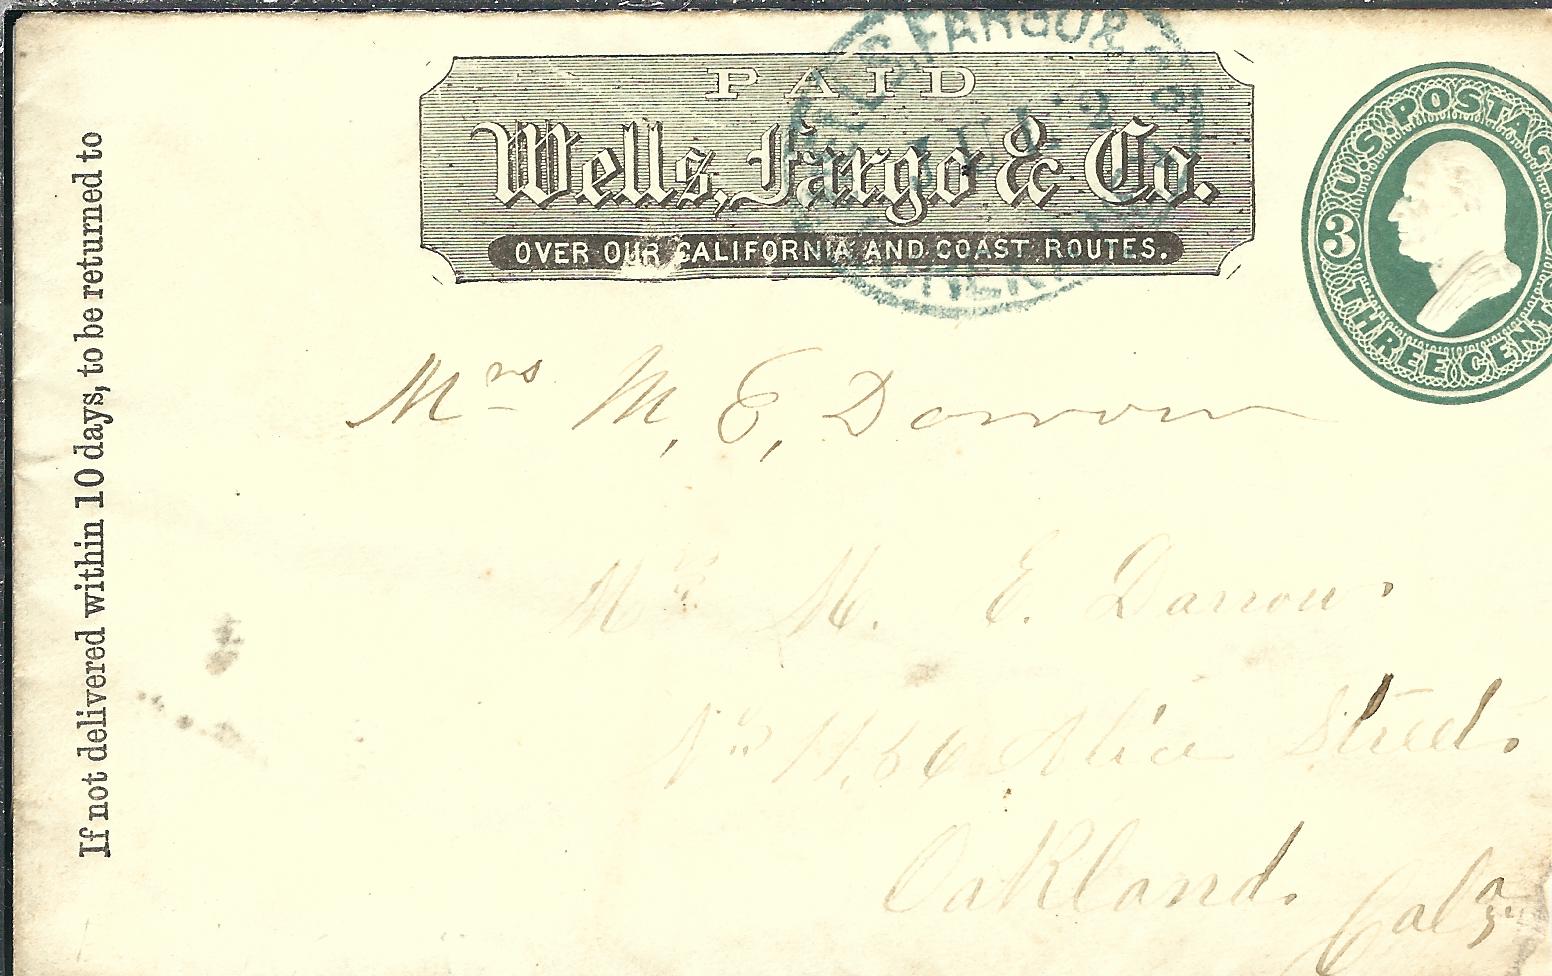 PAID
Wells, Fargo & Co.
OVER OUR CALIFORNIA AND COAST ROUTES.
WELLS FARGO &
JUL 2
U.S. POSTAG
3
THREE CENT
If not delivered within 10 days, to be returned to
Mrs M, E, Darrow
Mrs M. E. Darrow.
No 1156 Alice Street.
Oakland. Cala